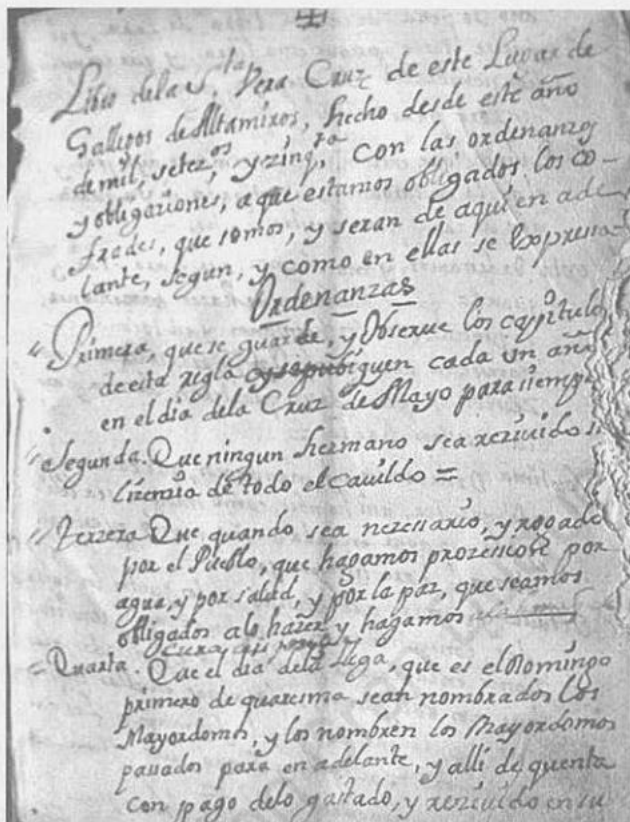 Libro de la S.ta Vera Cruz de este Lugar de
Gallegos de Altamiros, hecho desde este año
de mil, setez.os y zinq.ta con las ordenanzas
y obligaziones, a que estamos obligados los co-
frades, que somos, y seran de aqui en ade
lante, segun, y como en ellas se Expressa
Ordenanzas
Primera, que se guarde, y Observe los capitulos
de esta regla y se publiquen cada un año
en el dia dela Cruz de Mayo para siempre
Segunda. Que ningun hermano sea rezivido
lizenzia de todo el cavildo =
Terzera Que quando sea nezessario, y rogado
por el Pueblo, que hagamos prozesiones por
agua, y por salud, y por la paz, que seamos
obligados alo hazer y hagamos
Quarta. Que el dia dela, que es el Domingo
primero de quaresma sean nombrados los
Mayordomos, y los nombren los Mayordomos
passados para en adelante, y alli de quenta
con pago delo gastado, y rezivido en su